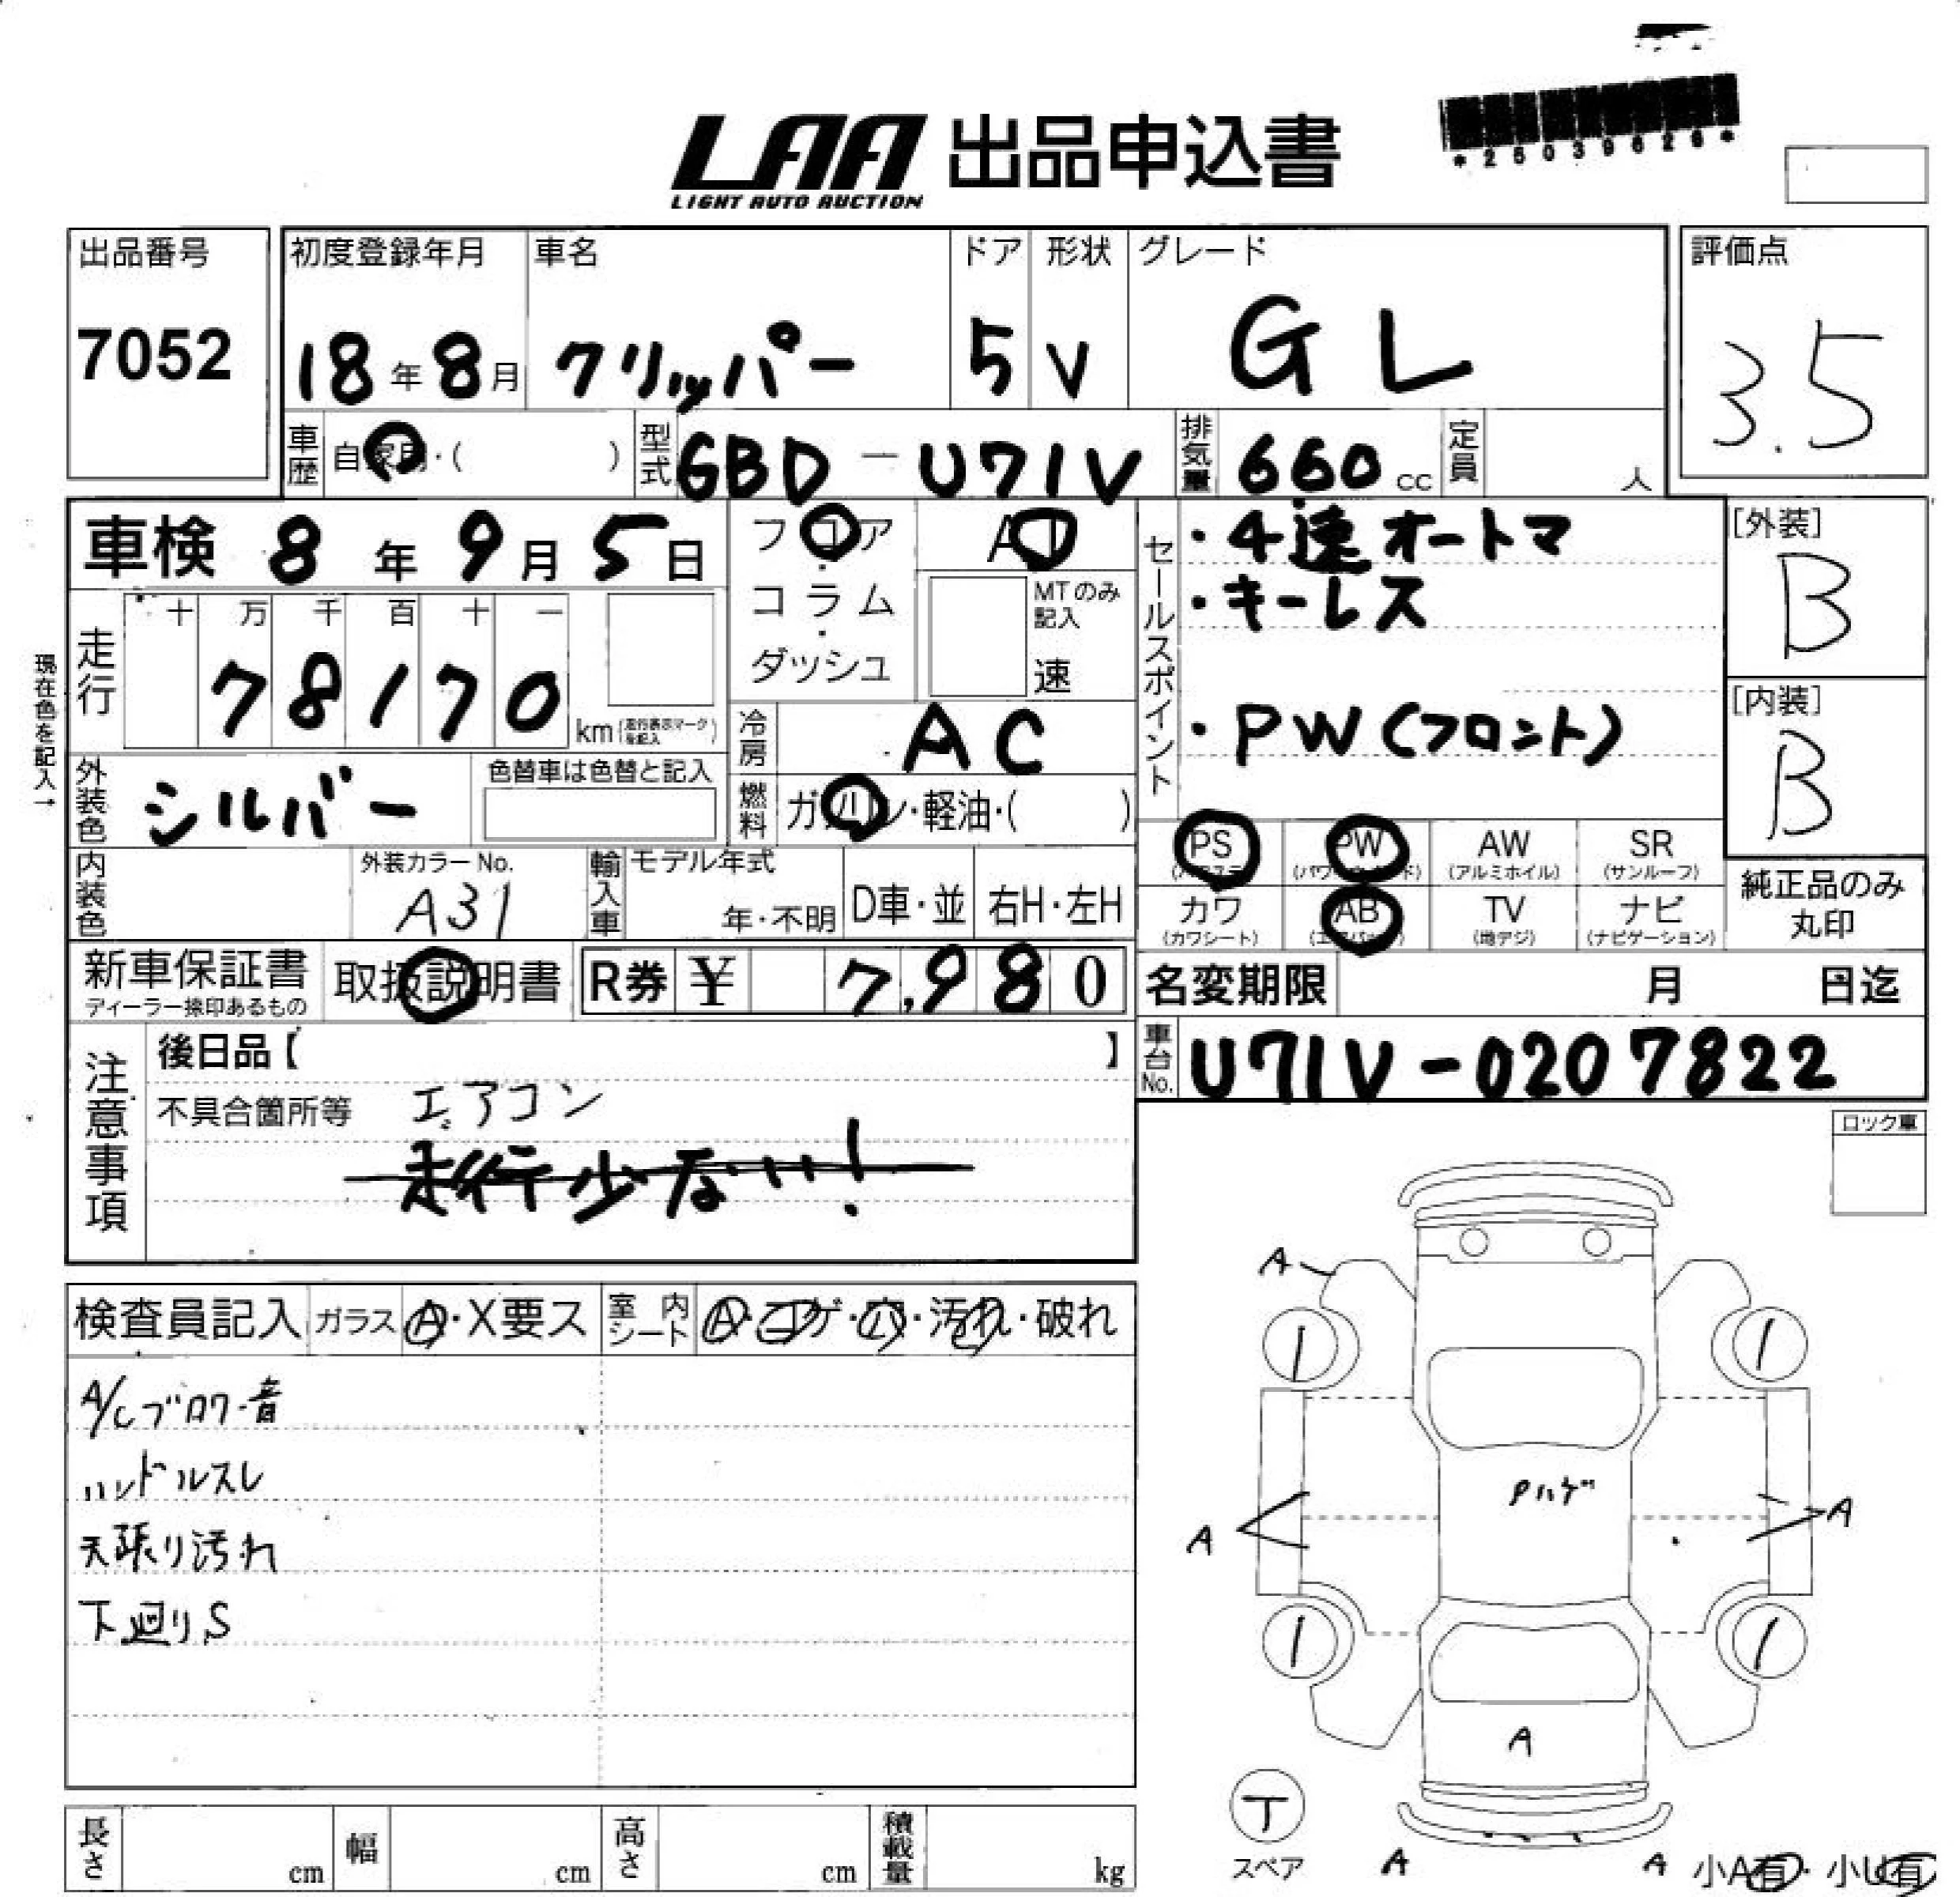 LAA 出品申込書
LIGHT AUTO AUCTION
出品番号
7052
初度登録年月
18年8月
車名
クリッパー
ドア
5
形状
V
グレード
GL
評価点
3.5
車歴
自家用・( )
型式
GBD-U71V
排気量
660cc
定員
人
車検 8年9月5日
フロア・コラム・ダッシュ
AT
MTのみ記入
速
セールスポイント
・4速オートマ
・キーレス
・PW(フロント)
[外装]
B
[内装]
B
現在色を記入→
走行
十 万 千 百 十 一
78170
km
冷房
AC
外装色
シルバー
色替車は色替と記入
燃料
ガソリン・軽油・( )
PS
PW
AW
(アルミホイル)
SR
(サンルーフ)
カワ
(カワシート)
AB
TV
(地デジ)
ナビ
(ナビゲーション)
純正品のみ
丸印
内装色
外装カラーNo.
A31
輸入車
モデル年式
年・不明
D車・並
右H・左H
新車保証書
取扱説明書
R券 ¥ 7,980
名変期限 月 日迄
車台No.
U71V-0207822
注意事項
後日品【 】
不具合箇所等 エアコン
走行少ない!
ロック車
検査員記入
ガラス
A・X要ス
室内シート
A・コゲ・穴・汚れ・破れ
A/Cブロワー音
ハンドルスレ
天張り汚れ
下廻りS
A
Pハゲ
A
A
A
丁
スペア
A
A
小A有・小U有
長さ cm
幅 cm
高さ cm
積載量 kg